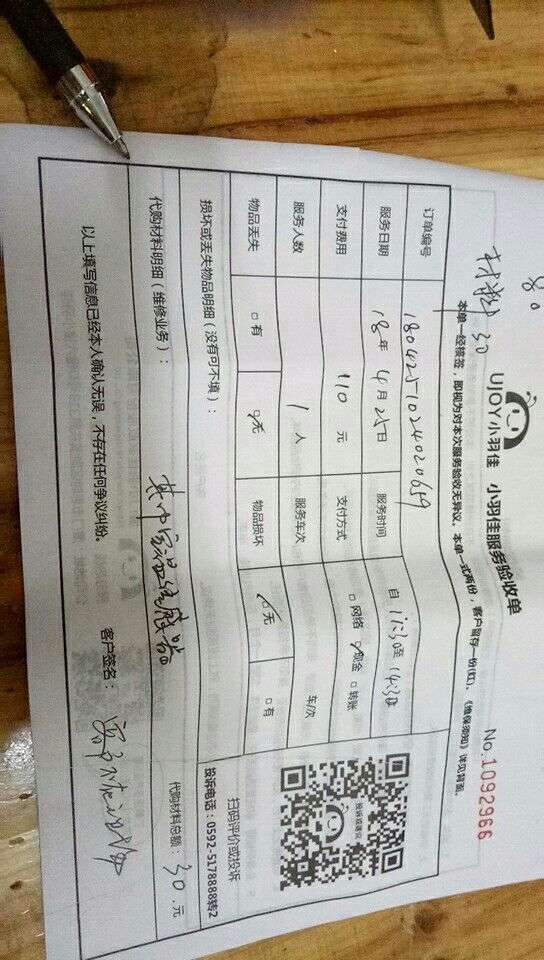 80
材料 30
UJOY小羽佳 小羽佳服务验收单
No.1092966
本单一经核签，即视为对本次服务验收无异议。本单一式两份，客户留存一份(红)。《维保须知》详见背面。
订单编号 1804251024020659
服务日期 18年 4月25日 服务时间 自 11:30至 14:30
支付费用 110 元 支付方式 □网络 ☑现金 □转账
服务人数 1 人 服务车次 车/次
物品丢失 □有 ☑无 物品损坏 ☑无 □有
损坏或丢失物品明细（没有可不填）：
代购材料明细（维修业务）：
代购材料总额：30.元
以上填写信息已经本人确认无误，不存在任何争议纠纷。
客户签名：
投诉或建议
扫码评价或投诉
投诉电话：0592-5178888转2